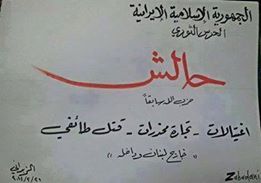 الجمهورية الاسلامية الايرانية
الحرس الثوري
حالش
حزب الله سابقاً
اغتيالات - تجارة مخدرات - قتل طائفي
" خارج لبنان وداخله "
الزبداني
Zabadani